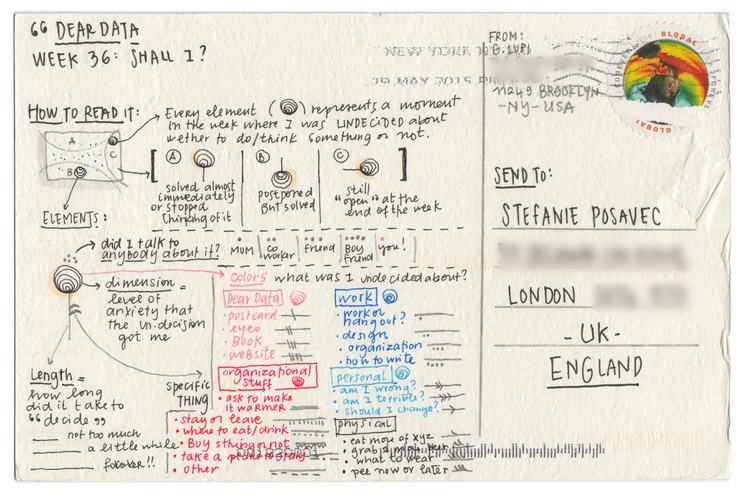 “ DEAR DATA
WEEK 36: SHALL I?
HOW TO READ IT:
Every element ( ) represents a moment
in the week where I was UNDECIDED about
wether to do/think something or not.
A
B
C
[ A B C ]
solved almost
immediately
or stopped
thinking of it
postponed
But solved
still
"open" at the
end of the week
ELEMENTS:
did I talk to
anybody about it?
MUM
CO
WORKER
friend
Boy
friend
you!
dimension =
level of
anxiety that
the un.decision
got me
Length =
how long
did it take to
“decide”
not too much
a little while
forever!!
colors what was I undecided about?
specific
THING
Dear Data
• postcard
• eyeo
• Book
• website
work
• work or
hang out?
• design
• organization
• how to write
organizational
stuff
• ask to make
it warmer
• stay or leave
• where to eat/drink
• Buy sthing or not
• take a
• other
personal
• am I wrong?
• am I terrible?
• should I change?
physical
• eat more of xyz
• grab a
• what to wear
• pee now or later
FROM:
G. LUPI
11249 BROOKLYN
-NY- USA
NEW YORK
19 MAY 2015 PM
GLOBAL
FOREVER
GLOBAL
SEND TO:
STEFANIE POSAVEC
LONDON
- UK -
ENGLAND